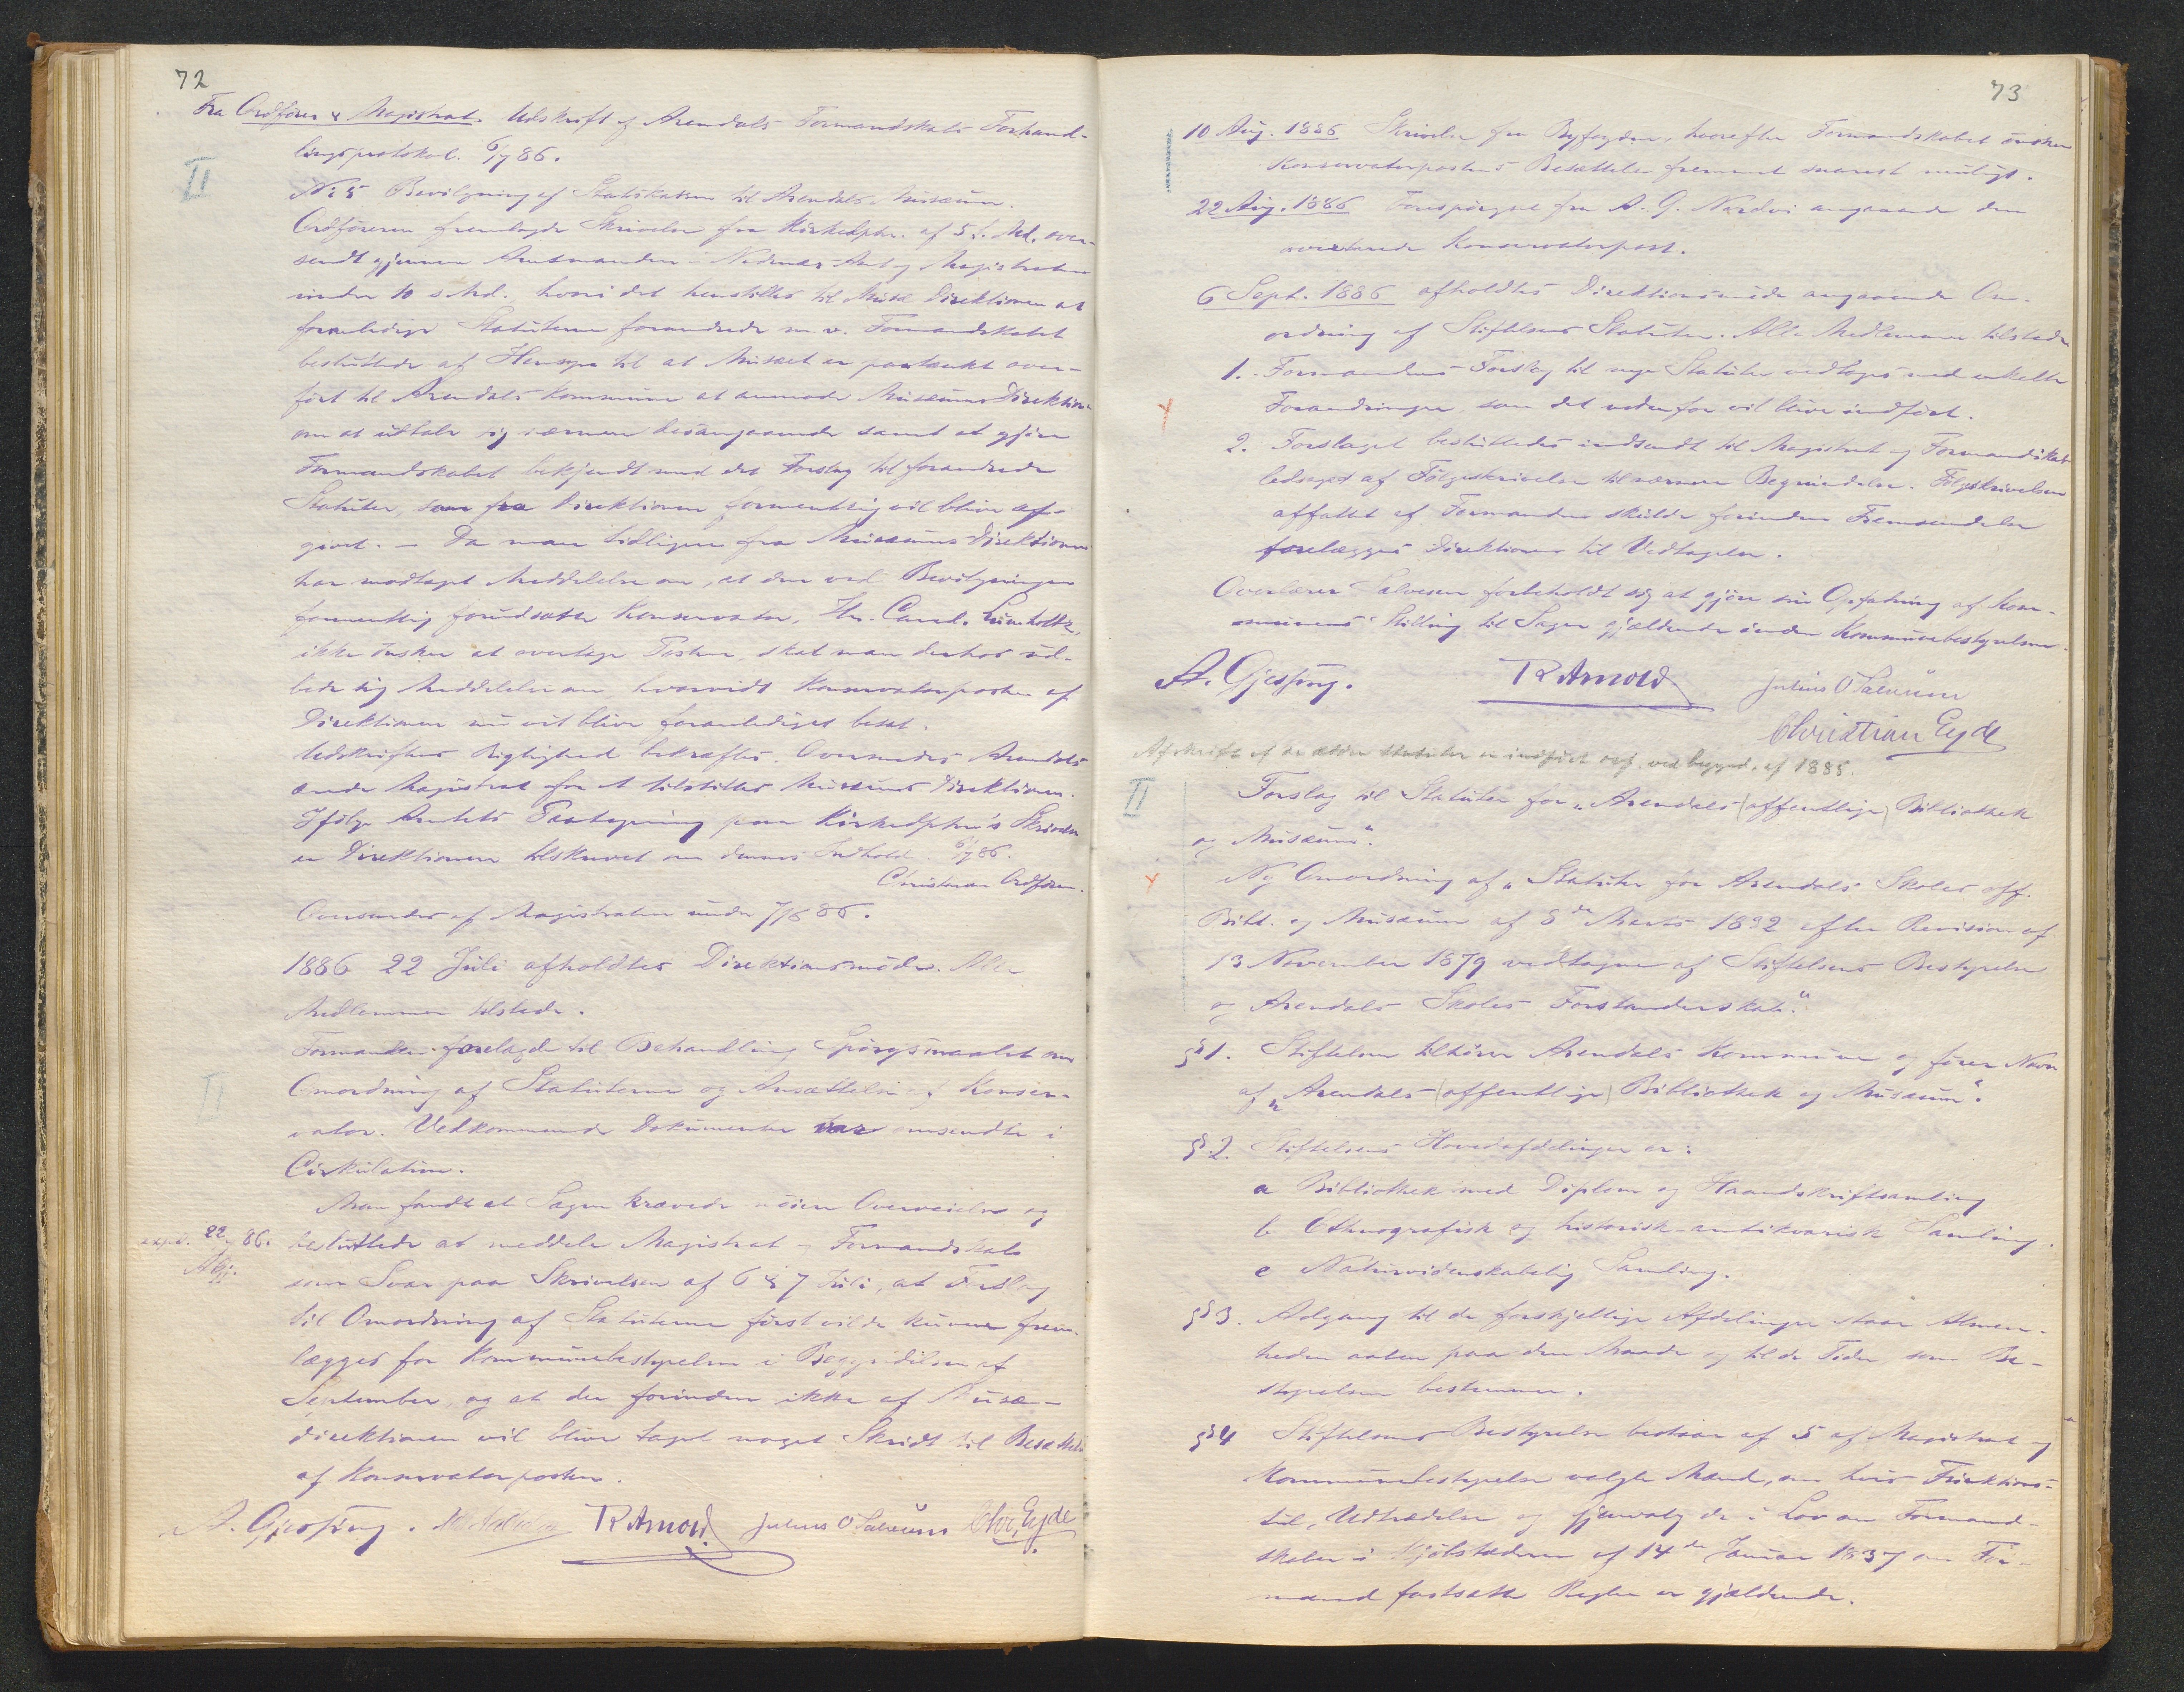 72
Fra Ordfører & Magistrat. Udskrift af Arendals Formandskabs Forhand-
lingsprotokol. 6/7 86.
II
No 5 Bevilgning af Statskassen til Arendals Musæum.
Ordføreren fremlagde Skrivelse fra Kirkedptm. af 5 f. Md. over-
sendt gjennem Amtmanden i Nedenæs Amt og Magistraten
under 10 s. Md. hvori det henstilles til Musæ Direktionen at
foranledige Statuterne forandrede m. v. Formandskabet
besluttede af Hensyn til at Musæet er paatænkt over-
ført til Arendals Kommune at anmode Musæums Direktionen
om at udtale sig nærmere desangaaende samt at gjøre
Formandskabet bekjendt med det Forslag til forandrede
Statuter, som fra Direktionen formentlig vil blive af-
givet. — Da man tidligere fra Musæums Direktionen
har modtaget Meddelelse om, at den ved Bevilgningen
formentlig forudsatte Konservator, Hr. Cand. Lumholtz,
ikke ønsker at overtage Posten, skal man derhos ud-
bede sig Meddelelse om hvorvidt Konservatorposten af
Direktionen nu vil blive foranlediget besat.
Udskriftens Rigtighed bekræftes. Oversendes Arendals
ærede Magistrat for at tilstilles Musæums Direktionen.
Ifølge Amtets Paategning paa Kirkedptm's Skrivelse
er Direktionen tilskrevet om dennes Indhold. 6/7 86.
Christensen Ordfører.
Oversendes af Magistraten under 7/7 86.
1886 22 Juli afholdtes Direktionsmøde. Alle
Medlemmer tilstede.
Formanden forelagde til Behandling Spørgsmaalet om
II
Omordning af Statuterne og Ansættelse af Konser-
vator. Vedkommende Dokumenter var omsendte i
Cirkulation.
Man fandt at Sagen krævede nøiere Overveielse og
expd. 22/7 86.
AGj.
besluttede at meddele Magistrat og Formandskab
som Svar paa Skrivelsen af 6 & 7 Juli, at Forslag
til Omordning af Statuterne først vilde kunne frem-
lægges for Kommunebestyrelsen i Begyndelsen af
September, og at der forinden ikke af Musæ-
direktionen vil blive taget noget Skridt til Besættelse
af Konservatorposten.
A. Gjessing. R Arnold. Julius O Salvesen Chr. Eyde
73
10 Aug. 1886 Skrivelse fra Byfogden, hvorefter Formandskabet ønsker
Konservatorpostens Besættelse fremmet snarest muligt.
22 Aug. 1886 Forespørgsel fra A. G. Nardvi angaaende den
averterede Konservatorpost.
6 Sept. 1886 afholdtes Direktionsmøde angaaende Om-
ordning af Stiftelsens Statuter. Alle Medlemmer tilstede
1. Formandens Forslag til nye Statuter vedtoges med enkelte
Forandringer, som det nedenfor vil blive indført.
2. Forslaget besluttedes indsendt til Magistrat og Formandskab
ledsaget af Følgeskrivelse til nærmere Begrundelse. Følgeskrivelsen
affattet af Formanden skulde forinden Fremsendelse
forelægges Direktionen til Vedtagelse.
Overlærer Salvesen forbeholdt sig at gjøre sin Opfatning af Kom-
munens Stilling til Sagen gjældende inden Kommunebestyrelsen.
A. Gjessing. R Arnold. Julius O Salvesen
Christian Eyde
Afskrift af de ældre Statuter er indført ovf. ved begynd. af 1885.
II
Forslag til Statuter for "Arendals (offentlige) Bibliothek
og Musæum".
Ny Omordning af "Statuter for Arendals Skoles off.
Bibl. og Musæum af 8de Marts 1832 efter Revision af
13 November 1879 vedtagne af Stiftelsens Bestyrelse
og Arendals Skoles Forstanderskab."
§ 1. Stiftelsen tilhører Arendals Kommune og fører Navn
af "Arendals (offentlige) Bibliothek og Musæum".
§ 2. Stiftelsens Hovedafdelinger er:
a Bibliothek med Diplom og Haandskriftsamling
b Ethnografisk og historisk-antikvarisk Samling.
c Naturvidenskabelig Samling.
§ 3. Adgang til de forskjellige Afdelinger staar Almen-
heden aaben paa den Maade og til de Tider som Be-
styrelsen bestemmer.
§ 4 Stiftelsens Bestyrelse bestaar af 5 af Magistrat og
Kommunebestyrelse valgte Mænd, om hvis Funktions-
tid, Udtrædelse og Gjenvalg de i Lov om Formand-
skaber i Kjøbstæderne af 14de Januar 1837 om For-
mænd fastsatte Regler er gjældende.